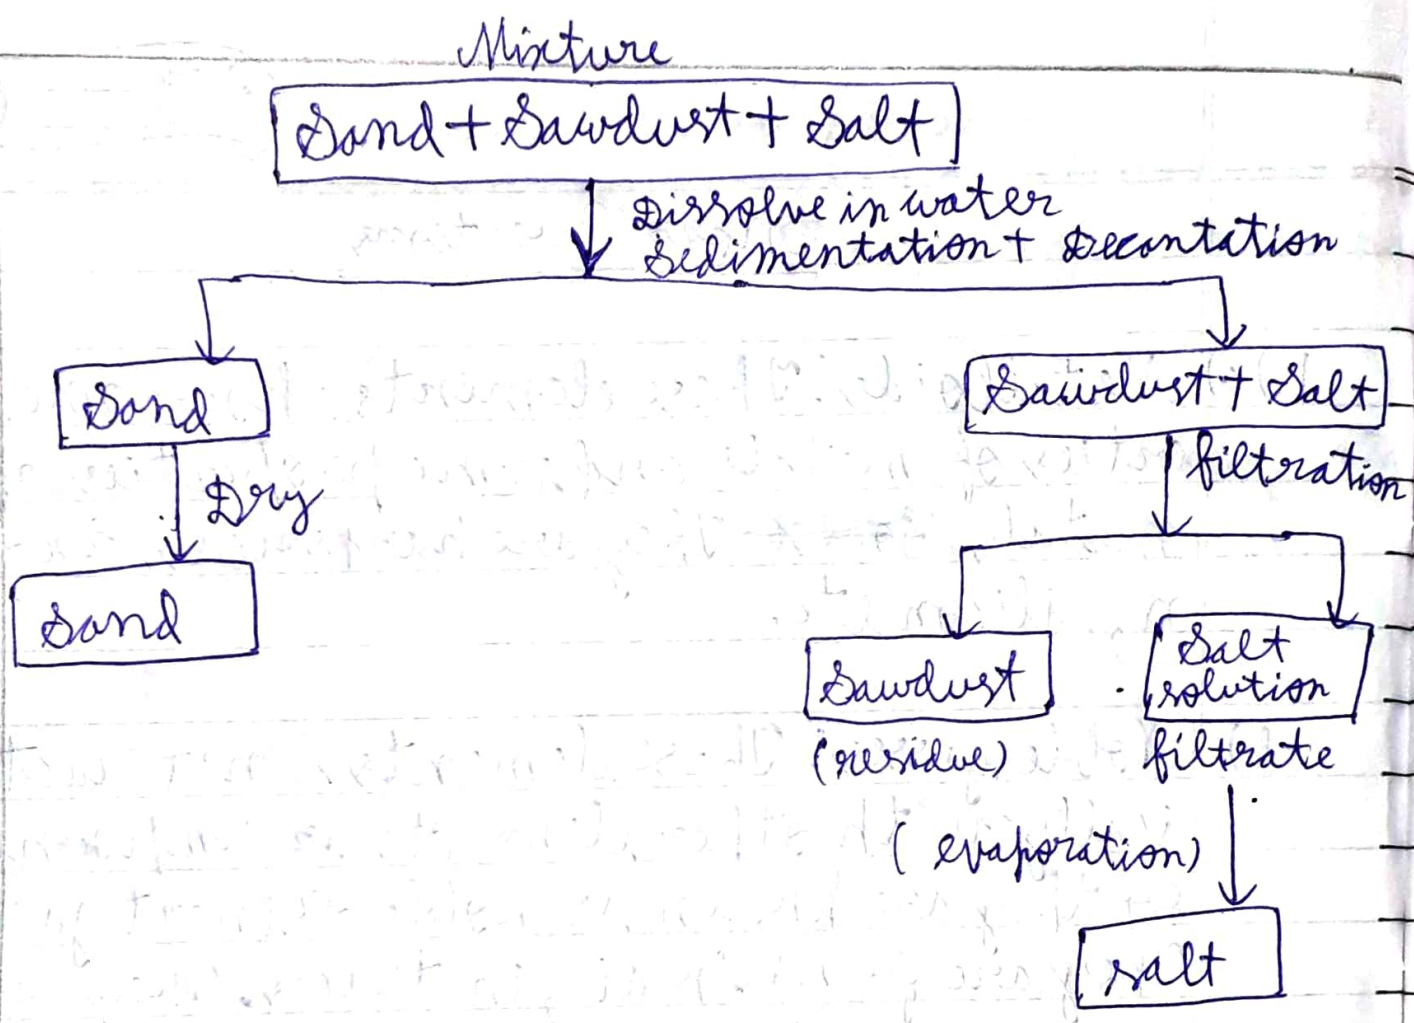 Mixture
Sand + Sawdust + Salt
Dissolve in water
Sedimentation + Decantation
Sand
Sawdust + Salt
filtration
Dry
Sand
Sawdust
Salt
solution
(residue)
filtrate
(evaporation)
salt